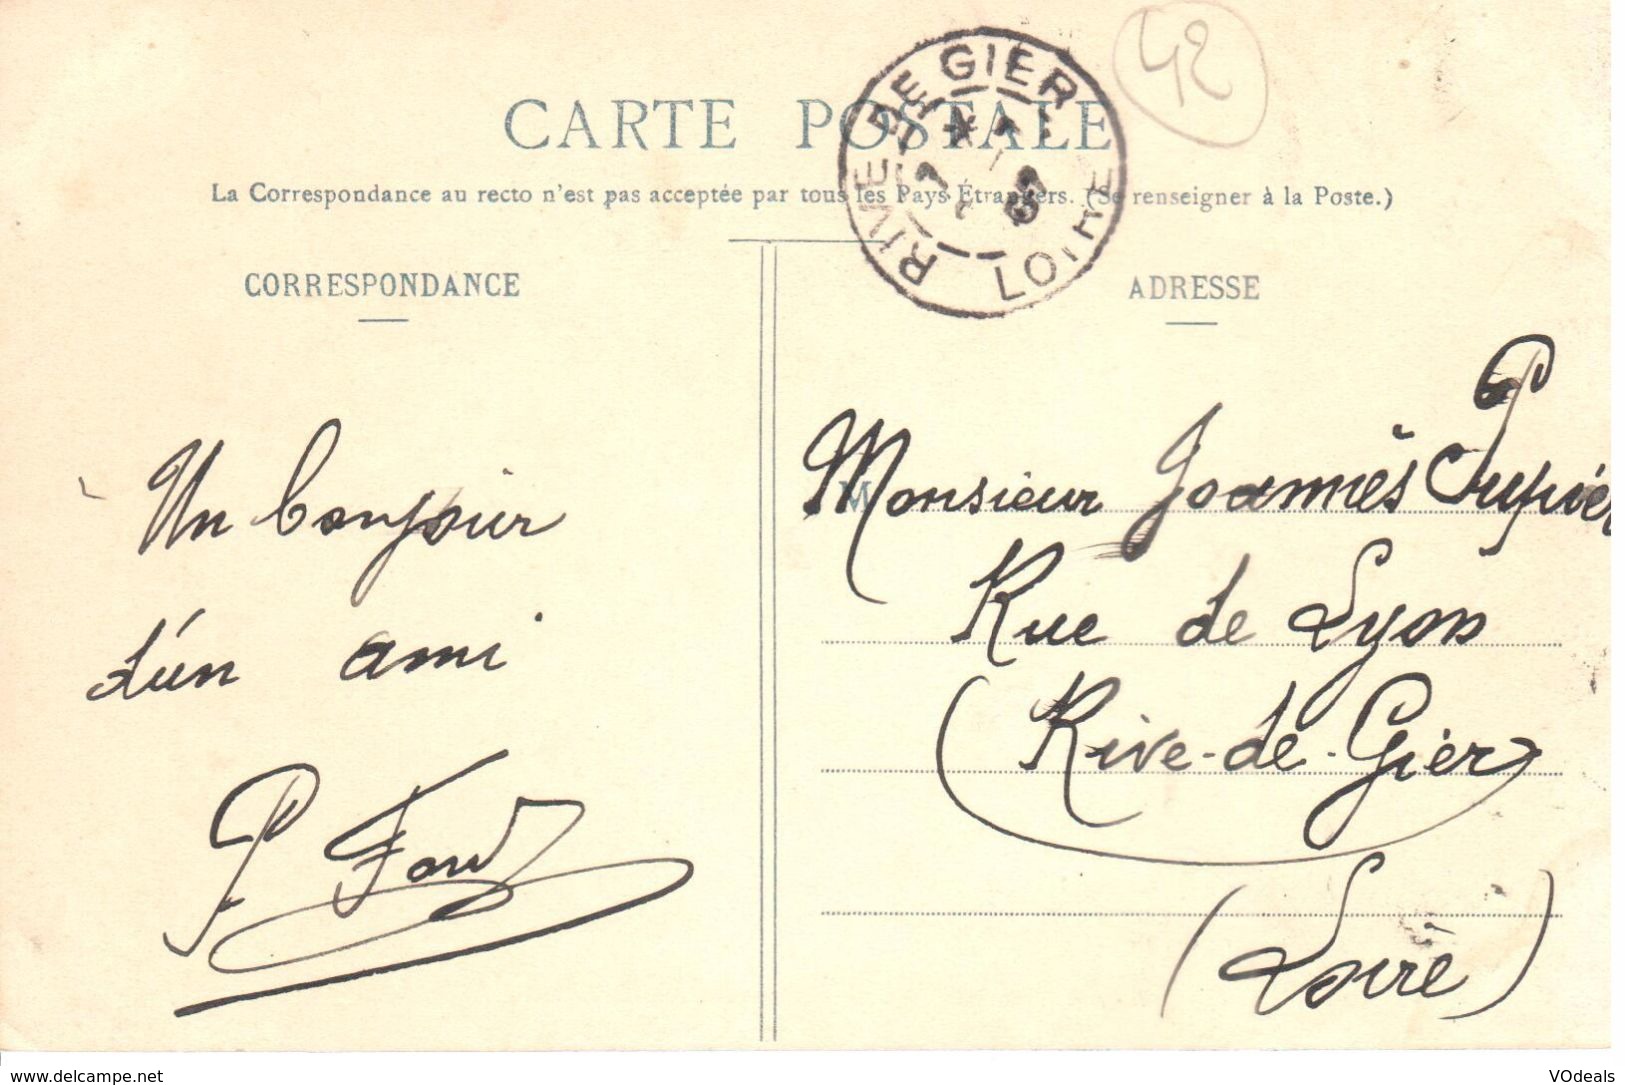 CARTE POSTALE
La Correspondance au recto n'est pas acceptée par tous les Pays Étrangers. (Se renseigner à la Poste.)
RIVE DE GIER
LOIRE
42
CORRESPONDANCE
Un bonjour
d'un ami
ADRESSE
M
Monsieur Joannès Pupier
Rue de Lyon
Rive-de-Gier
(Loire)
www.delcampe.net
VOdeals